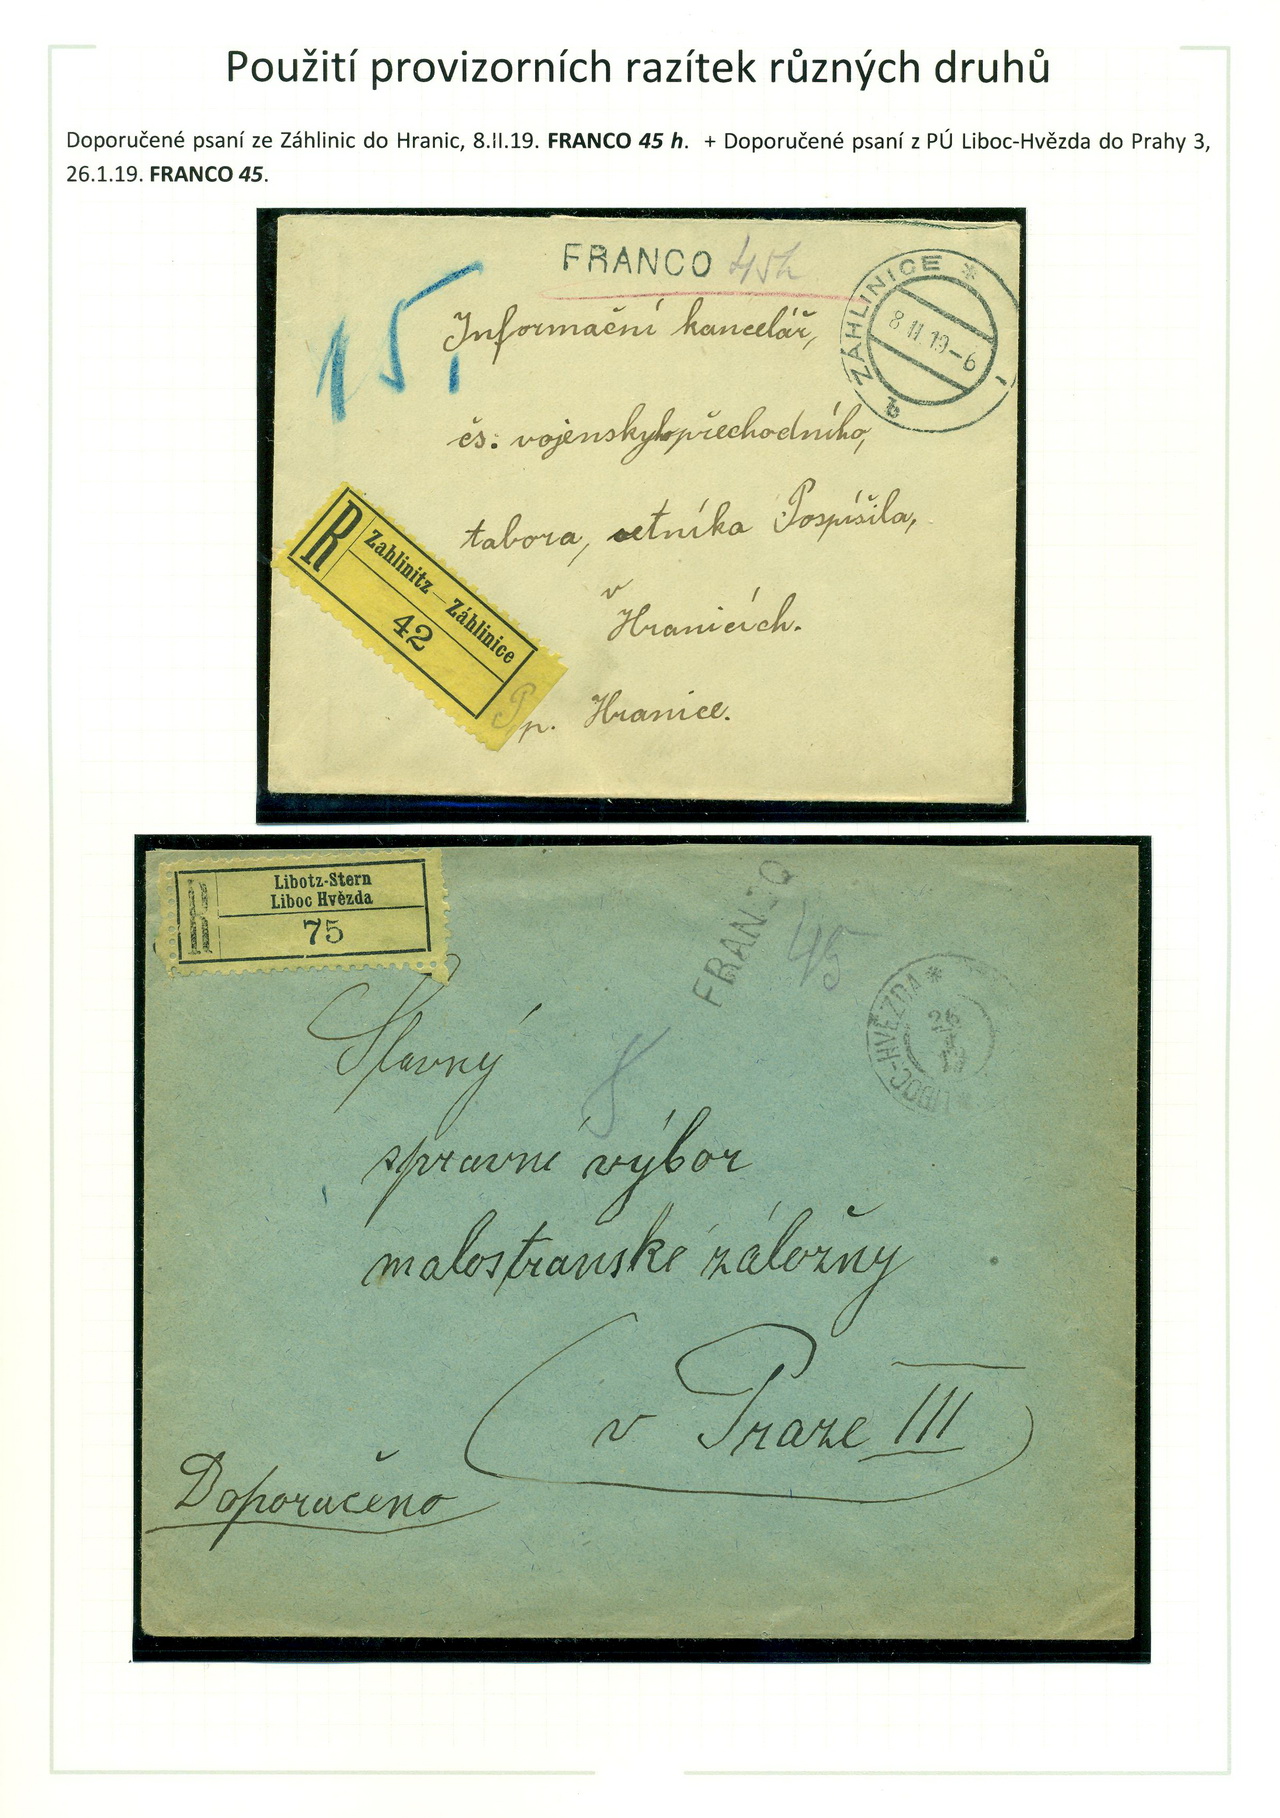 Použití provizorních razítek různých druhů
Doporučené psaní ze Záhlinic do Hranic, 8.II.19. FRANCO 45 h. + Doporučené psaní z PÚ Liboc-Hvězda do Prahy 3,
26.1.19. FRANCO 45.
FRANCO 45h
ZÁHLINICE *
8 II 19-6
15,
Informační kancelář,
čs: vojenského přechodního,
tabora, setníka Pospíšila,
v
Hranicích.
p. Hranice.
R
Zahlinitz—Záhlinice
42
R
Libotz-Stern
Liboc Hvězda
75
FRANCO
45
* LIBOC-HVĚZDA *
26
I
19
Slavný
8
správní výbor
malostranské záložny
v Praze III
Doporučeno